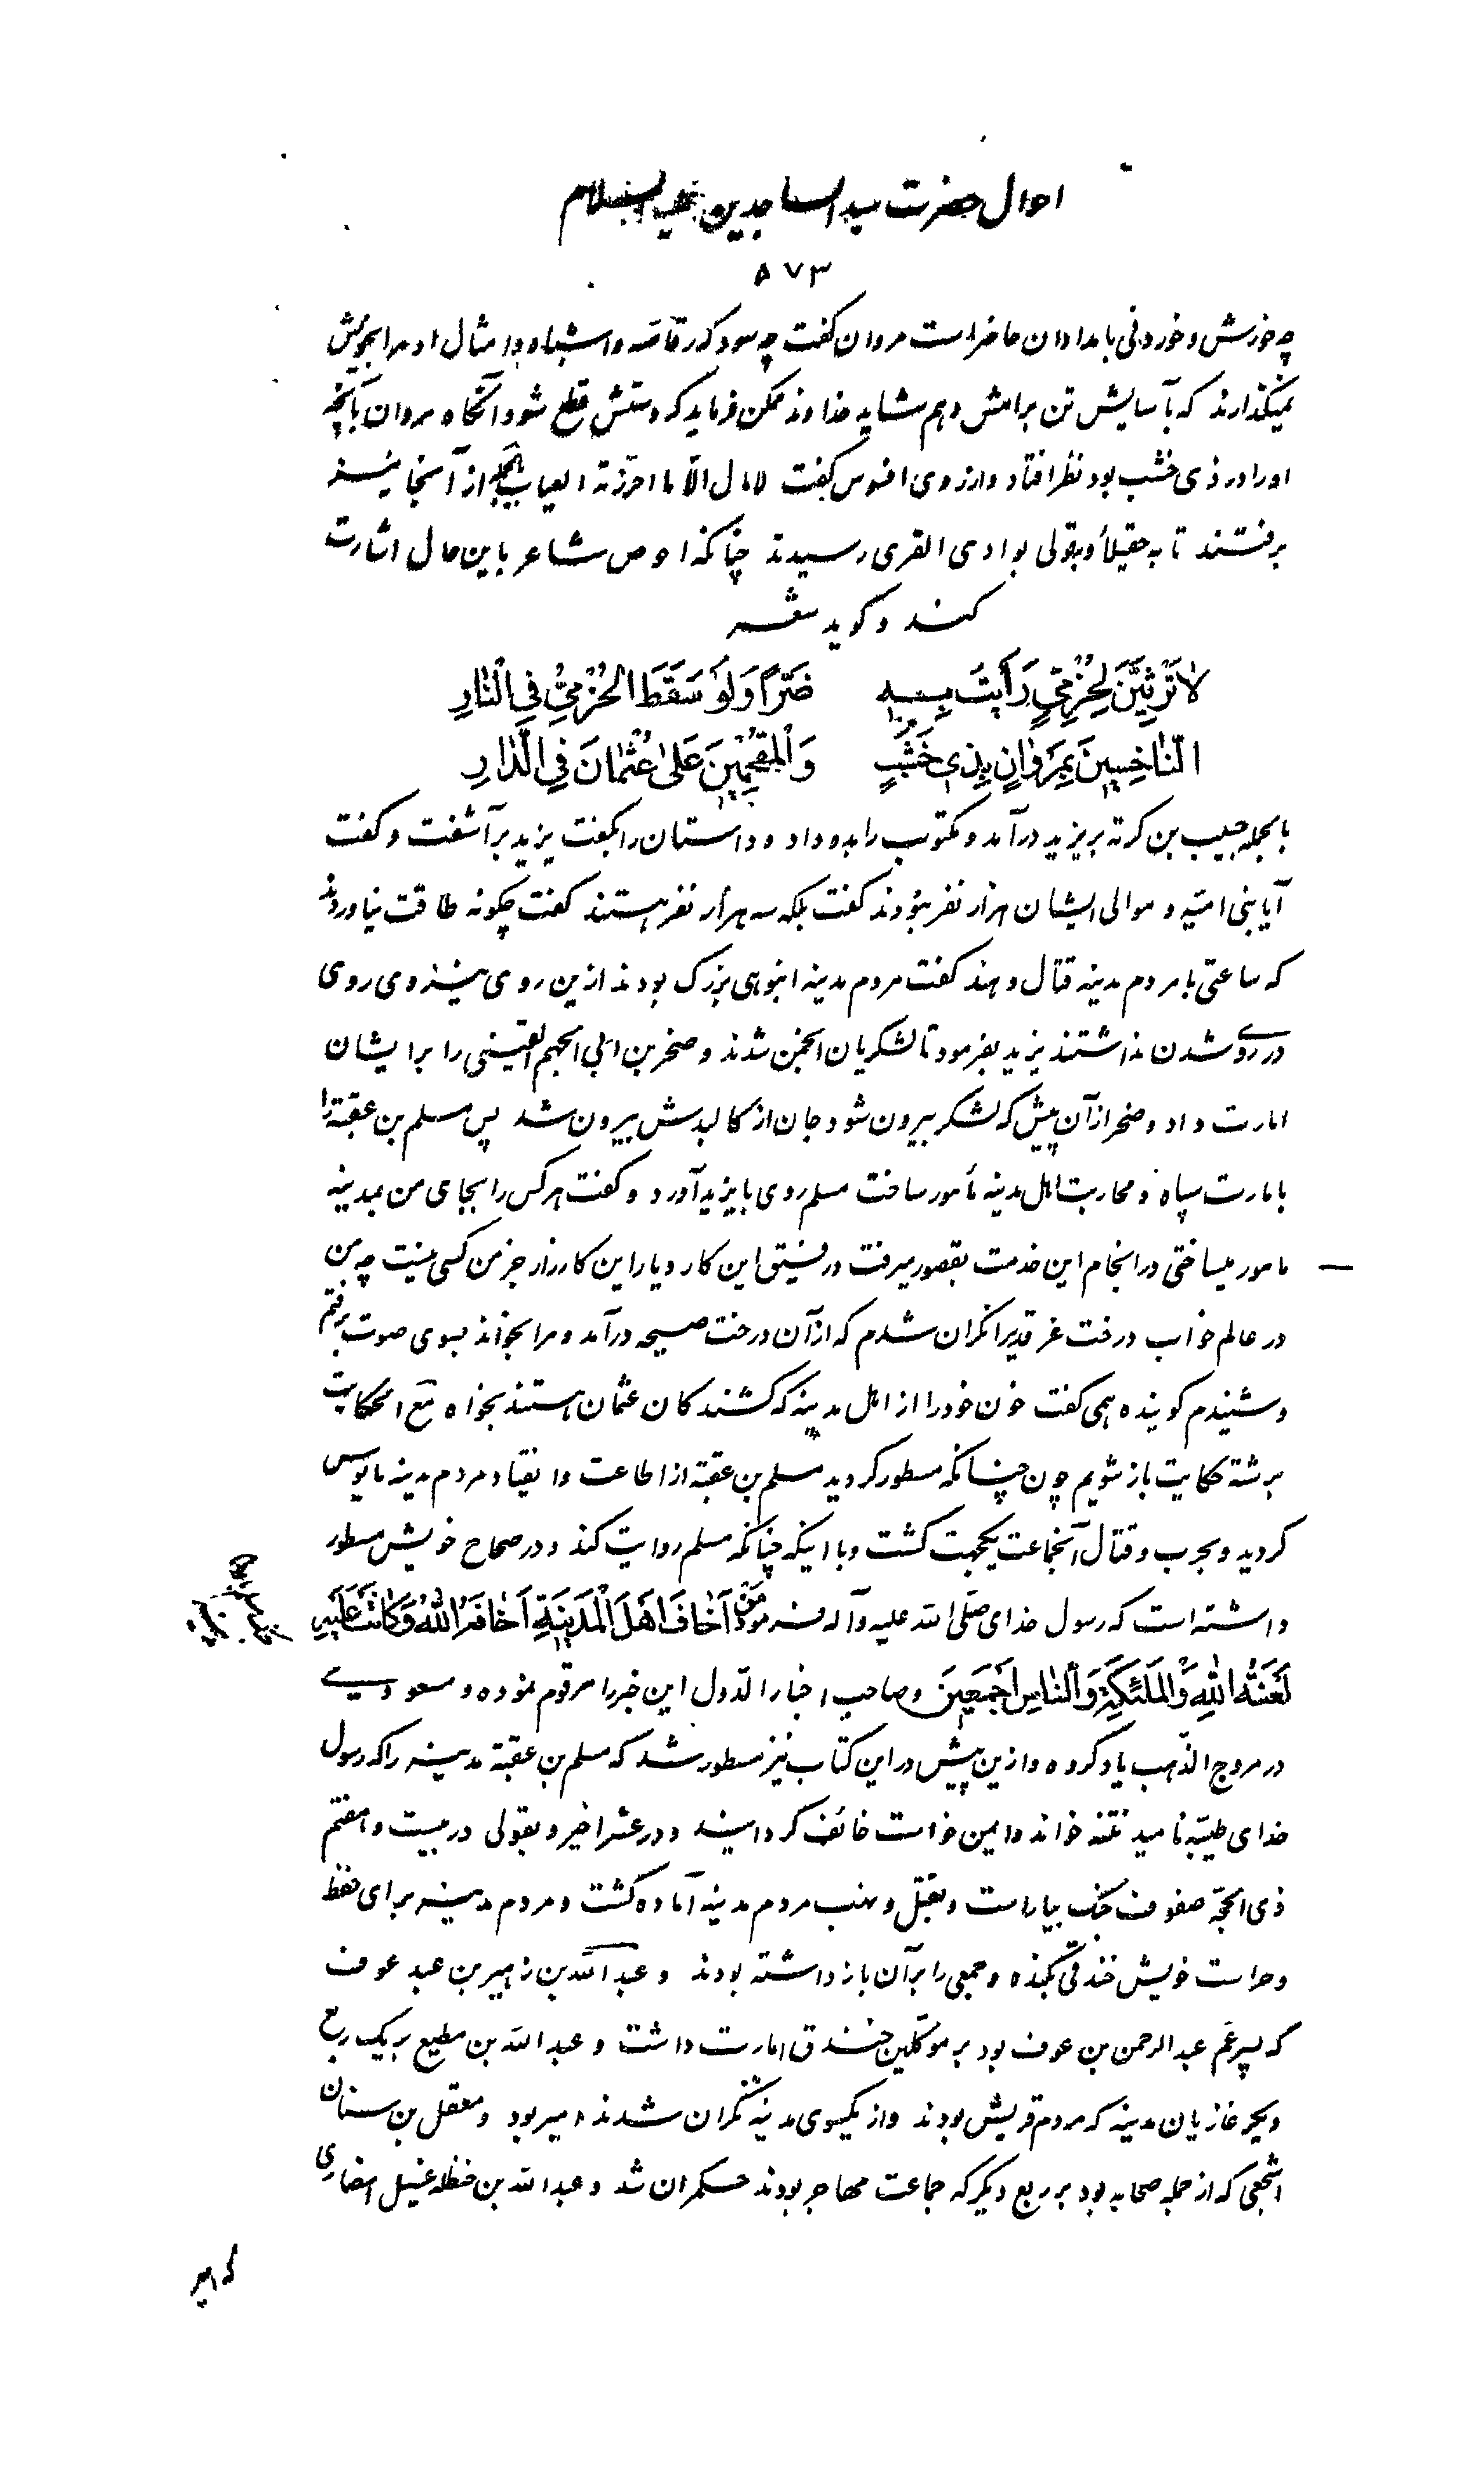 احوال حضرت سید الساجدین علیه السلام
۵۷۳
چه خورش و خوردنی بامدادان حاضر است مروان گفت چه سود که رقاصه و اشباه و امثال او مرا بخویش
نمیگذارند که بآسایش تن برامش دهم شاید خداوند ممکن فرماید که دستش قطع شود آنگاه مروان بآنچه
او را در ذی خشب بود نظر افتاد و از روی افسوس گفت لا مال الّا ما احرزته العیاب بالجمله از آنجا نیز
برفتند تا به حقیلأ و بقولی بوادی القری رسیدند چنانکه احوص شاعر باین حال اشارت
کند و گوید شعر
لاٰ تَرْثِیَنَّ لِحُزْمِیٍّ رَأَیْتَ بِهِ ضَرّاً وَلَوْ سَقَطَ الْحُزْمِیُّ فِی النّٰارِ
النّٰاخِسِینَ بِمَرْوٰانٍ بِذِی خَشَبٍ وَالْمُقْحِمِینَ عَلیٰ عُثْمٰانَ فِی الدّٰارِ
بالجمله حبیب بن کرته بر یزید درآمد و مکتوب را بدو داد و داستان را بگفت یزید برآشفت و گفت
آیا بنی امیّه و موالی ایشان هزار نفر نبودند گفت بلکه سه هزار نفر هستند گفت چگونه طاقت نیاوردند
که ساعتی با مردم مدینه قتال دهند گفت مردم مدینه انبوهی بزرگ بودند ازین روی نیروی روی
در روی شدن نداشتند یزید بفرمود تا لشکریان انجمن شدند و صخر بن ابی الجهم القینی را بر ایشان
امارت داد و صخر از آن پیش که لشکر بیرون شود جان از کالبدش بیرون شد پس مسلم بن عقبة را
بامارت سپاه و محاربت اهل مدینه مأمور ساخت مسلم روی با یزید آورد و گفت هر کس را بجای من بمدینه
مامور میساختی در انجام این خدمت بقصور میرفت و رفیق این کار و یار این کارزار جز من کسی نیست چه من
در عالم خواب درخت غرقد را نگران شدم که از آن درخت صیحه درآمد و مرا بخواند بسوی صوت برفتم
و شنیدم گوینده همی گفت خون خود را از اهل مدینه که کشندگان عثمان هستند بخواه مع الحکایت
برشته حکایت باز شویم چون چنانکه مسطور گردید مسلم بن عقبة از اطاعت و انقیاد مردم مدینه مایوس
گردید و بحرب و قتال آنجماعت یکجهت گشت و با اینکه چنانکه مسلم روایت کند و در صحاح خویش مسطور
داشته است که رسول خدای صلّی الله علیه وآله فرمود مَنْ اَخٰافَ اَهْلَ الْمَدِینَةِ اَخٰافَهُ اللّٰهُ وَ کٰانَتْ عَلَیْهِ
لَعْنَةُ اللّٰهِ وَالْمَلٰئِکَةِ وَالنّٰاسِ اَجْمَعِینَ و صاحب اخبار الدّول این خبر را مرقوم نموده و مسعودی
در مروج الذّهب یاد کرده و ازین پیش در این کتاب نیز مسطور شد که مسلم بن عقبة مدینه را که رسول
خدای طیّبه نامید نتنه خواند و ایمن خواست خائف گردانید و در عشر اخیر و بقولی در بیست و هفتم
ذی الحجّه صفوف جنگ بیاراست و بقتل و نهب مردم مدینه آماده گشت و مردم مدینه برای حفظ
و حراست خویش خندقی بکنده و جمعی را بر آن بازداشته بودند و عبد الله بن زهیر بن عبد عوف
که پسر عّم عبد الرحمن بن عوف بود بر موکّلین خندق امارت داشت و عبد الله بن مطیع بر یک ربع
دیگر غازیان مدینه که مردم قریش بودند و از یکسوی مدینه نگران شدند امیر بود و معقل بن سنان
اشجعی که از جمله صحابه بود بر ربع دیگر که جماعت مهاجر بودند حکمران شد و عبد الله بن حنظله غسیل انصاری
که امیر